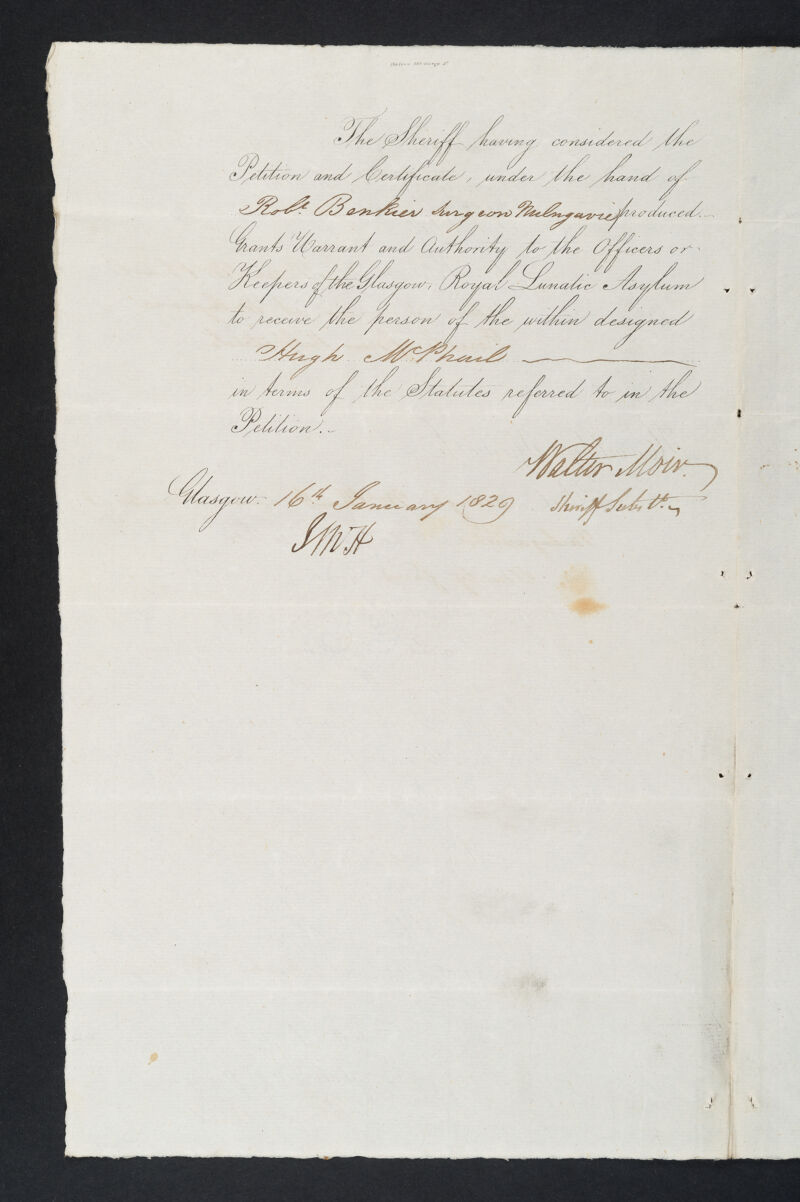 The Sheriff having considered the
Petition and Certificate, under the hand of
Robt. Benkier Surgeon Milngavie produced.
Grants Warrant and Authority to the Officers or
Keepers of the Glasgow, Royal Lunatic Asylum
to receive the person of the within designed
Hugh McPhail
in terms of the Statutes referred to in the
Petition.
Walter Moir.
Glasgow 16th January 1829 Sheriff Subste.